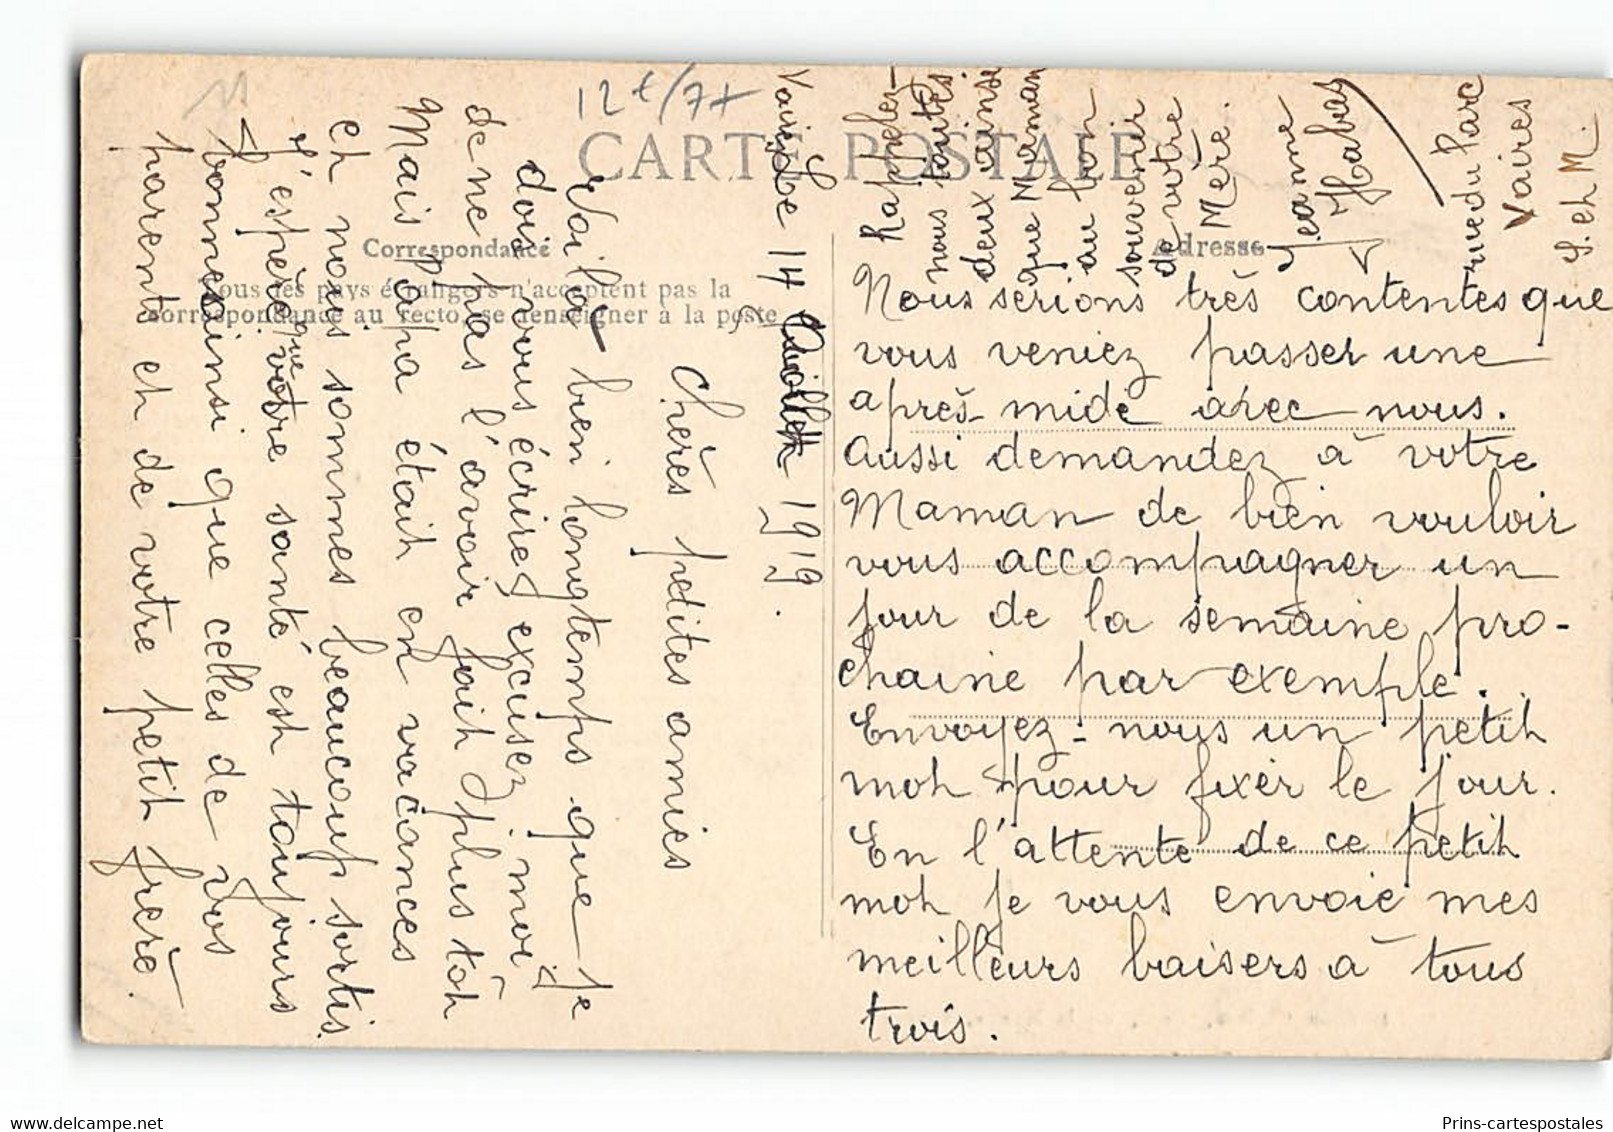 12t/7t
CARTE POSTALE
Correspondance
Adresse
Tous les pays étrangers n'acceptent pas la
correspondance au recto, se renseigner à la poste
Vaires, le 14 Juillet 1919.
Chères petites amies
Voilà bien longtemps que je
dois vous écrire, excusez-moi
de ne pas l'avoir fait plus tôt
Mais Papa était en vacances
et nous sommes beaucoup sortis.
J'espère que votre santé est toujours
bonne ainsi que celles de vos
parents et de votre petit frère.
Nous serions très contentes que
vous veniez passer une
après-midi avec nous.
Aussi demandez à votre
Maman de bien vouloir
vous accompagner un
jour de la semaine pro-
chaine par exemple.
Envoyez-nous un petit
mot pour fixer le jour.
En l'attente de ce petit
mot je vous envoie mes
meilleurs baisers à tous
trois.
Rappelez-
nous toutes
deux ainsi
que Maman
au bon
souvenir
de votre
Mère.
Jeanne
rue du Parc
Vaires
S. et M.
Prins-cartespostales